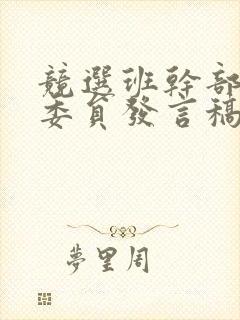 競選班幹部
委員發言稿
夢里周